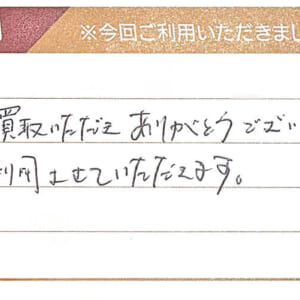 ※今回ご利用いただきまし
買取いただき ありがとうござい
利用させていただきます。